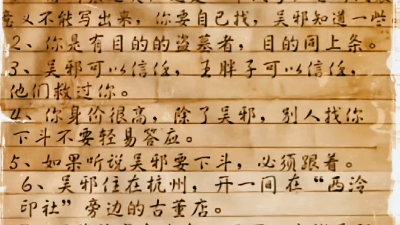 意义不能写出来，你要自己找，吴邪知道一些。
2、你是有目的的盗墓者，目的同上条。
3、吴邪可以信任，王胖子可以信任，
他们救过你。
4、你身份很高，除了吴邪，别人找你
下斗不要轻易答应。
5、如果听说吴邪要下斗，必须跟着。
6、吴邪住在杭州，开一间在“西泠
印社”旁边的古董店。